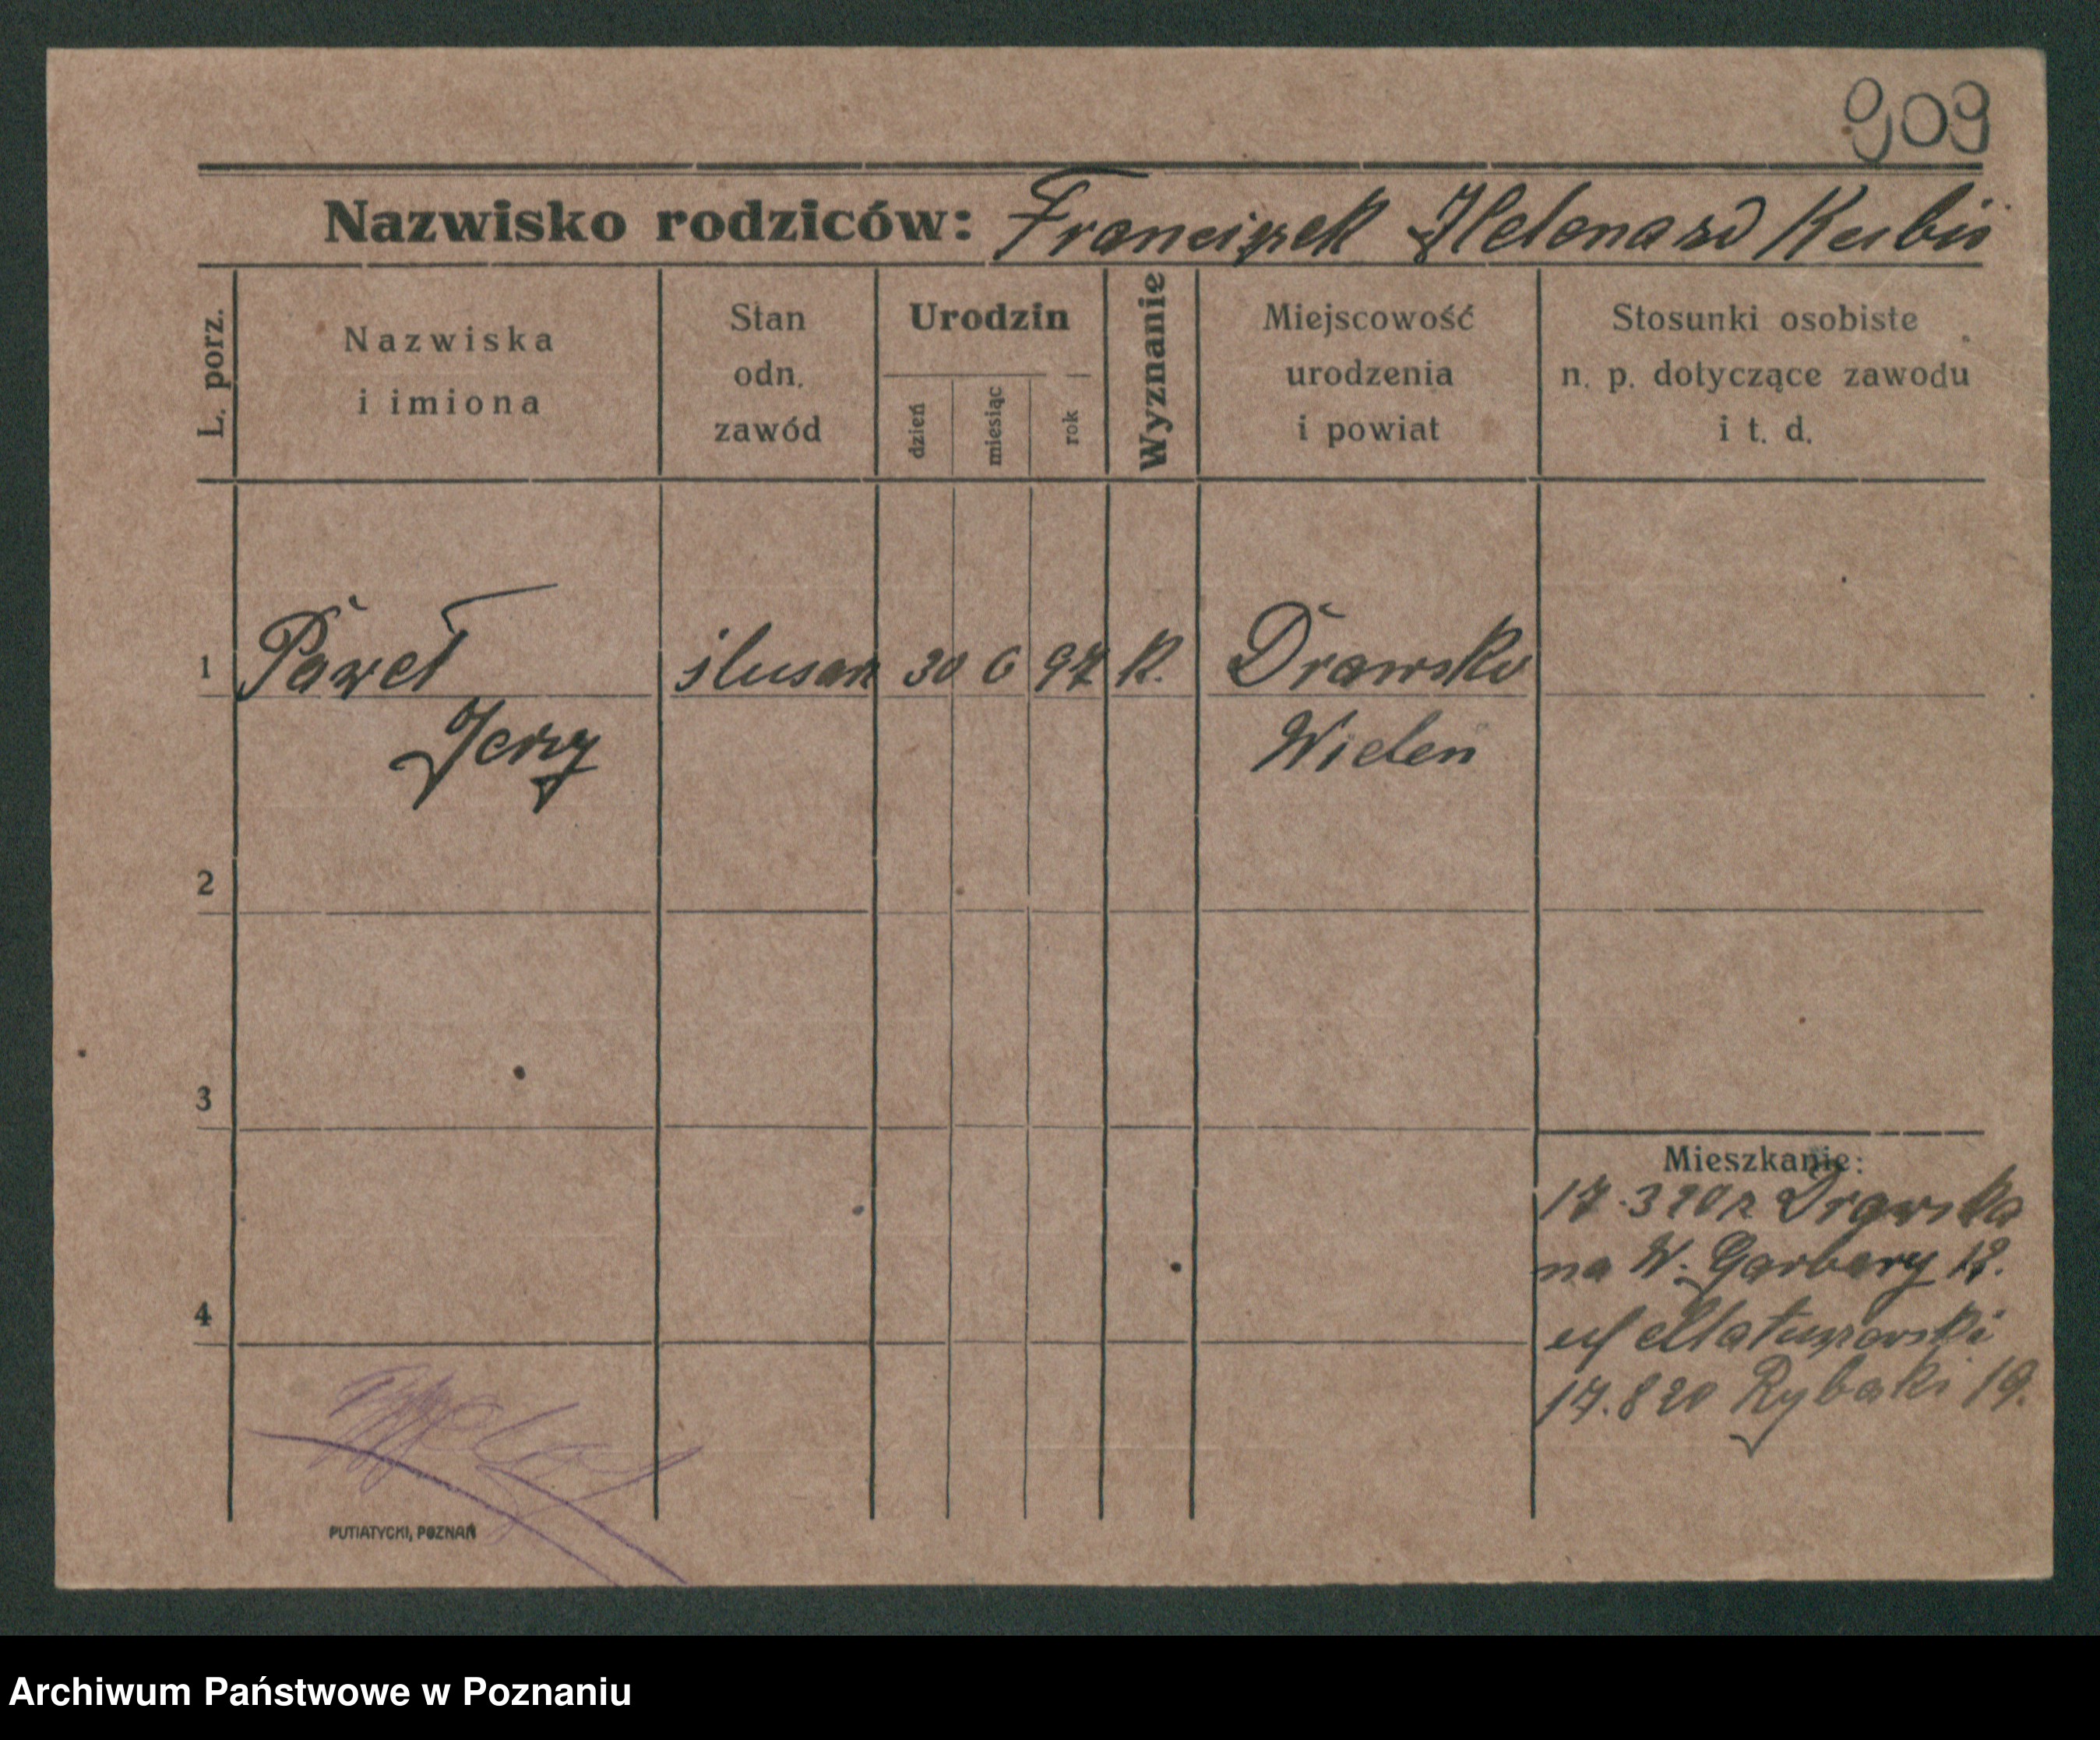 909
Nazwisko rodziców: Franciszek Helena zd Kubiś
L. porz.
Nazwiska
i imiona
Stan
odn.
zawód
Urodzin
dzień
miesiąc
rok
Wyznanie
Miejscowość
urodzenia
i powiat
Stosunki osobiste
n. p. dotyczące zawodu
i t. d.
1 Paweł ślusarz 30 6 97 K. Drawsko
Jerzy Wieleń
2
3
4
Mieszkanie:
17.3 20 z Drawska
na W. Garbary 12.
Matuszewski
17.8 20 Rybaki 19.
PUTIATYCKI, POZNAŃ
Archiwum Państwowe w Poznaniu